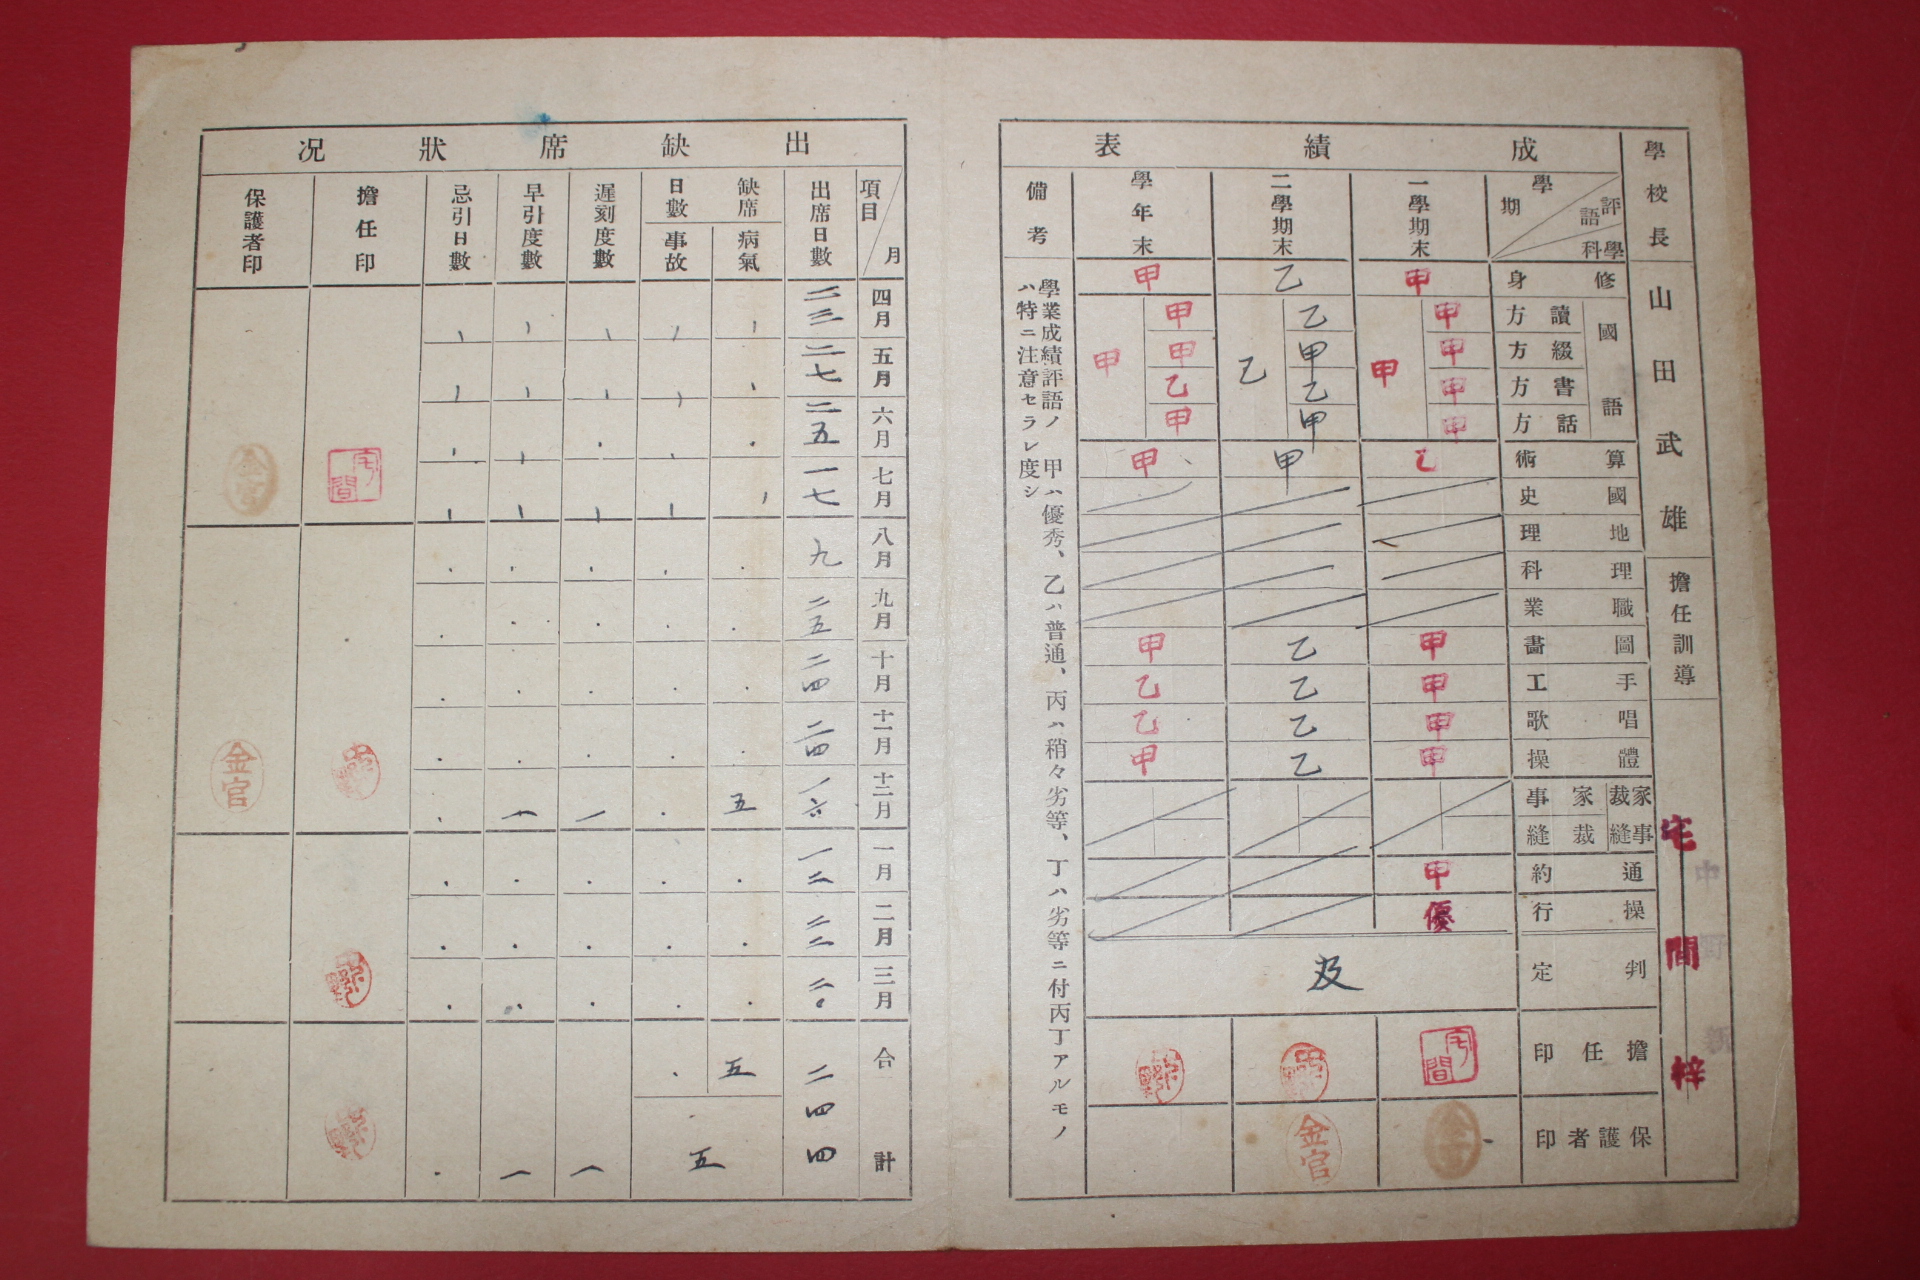 學校長
山田武雄
擔任訓導
宅間梓
成績表
學期 評語 學科
修身
國語
讀方
綴方
書方
話方
算術
國史
地理
理科
職業
圖畵
手工
唱歌
體操
家事裁縫
家事
裁縫
通約
操行
判定
擔任印
保護者印
一學期末
甲
甲
甲
甲
甲
甲
乙
甲
甲
甲
甲
甲
優
宅間
二學期末
乙
乙
甲
乙
甲
乙
甲
乙
乙
乙
乙
金官
學年末
甲
甲
甲
乙
甲
甲
甲
甲
乙
乙
甲
備考
學業成績評語ノ甲ハ優秀、乙ハ普通、丙ハ稍々劣等、丁ハ劣等ニ付丙丁アルモノ
ハ特ニ注意セラレ度シ
出缺席狀況
項目 月
四月
五月
六月
七月
八月
九月
十月
十一月
十二月
一月
二月
三月
合計
出席日數
二三
二七
二五
一七
九
二五
二四
二四
一六
一二
二二
二〇
二四四
缺席日數
病氣
五
五
事故
五
遲刻度數
一
一
早引度數
一
一
忌引日數
擔任印
宅間
保護者印
金官
金官